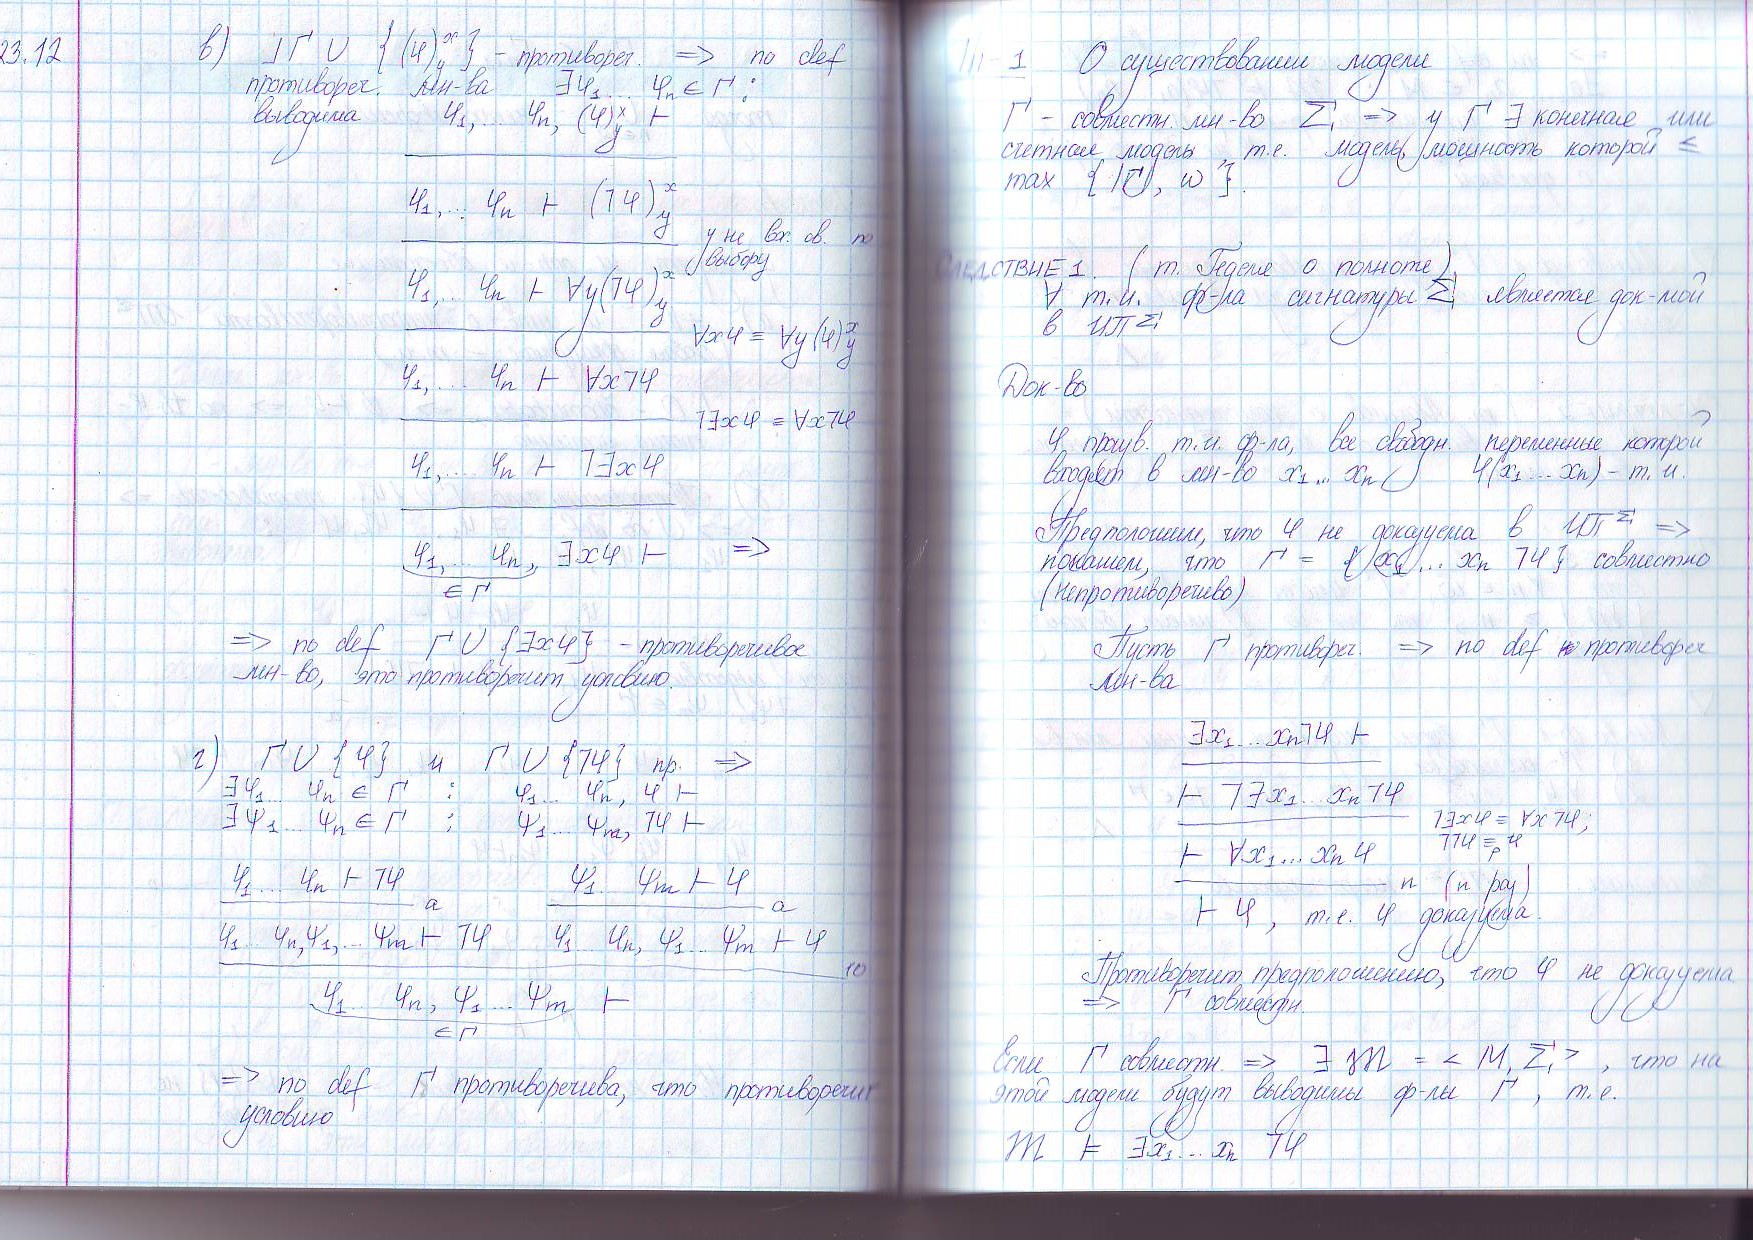 23.12
в) ]Г ∪ {(φ)ˣᵧ} - противореч. => по def
противореч. мн-ва ∃φ₁... φₙ ∈ Г :
выводима φ₁,... φₙ, (φ)ˣᵧ ⊢
φ₁,... φₙ ⊢ (⅂φ)ˣᵧ
y не вх. св. по
выбору
φ₁,... φₙ ⊢ ∀y(⅂φ)ˣᵧ
∀xφ ≡ ∀y(φ)ˣᵧ
φ₁,... φₙ ⊢ ∀x⅂φ
⅂∃xφ ≡ ∀x⅂φ
φ₁,... φₙ ⊢ ⅂∃xφ
φ₁,... φₙ, ∃xφ ⊢ =>
∈ Г
=> по def Г ∪ {∃xφ} - противоречивое
мн-во, это противоречит условию.
г) Г ∪ {φ} и Г ∪ {⅂φ} пр. =>
∃φ₁... φₙ ∈ Г : φ₁... φₙ, φ ⊢
∃ψ₁... ψₙ ∈ Г : ψ₁... ψₘ, ⅂φ ⊢
φ₁... φₙ ⊢ ⅂φ ψ₁... ψₘ ⊢ φ
a a
φ₁... φₙ, ψ₁,... ψₘ ⊢ ⅂φ φ₁... φₙ, ψ₁... ψₘ ⊢ φ
10
φ₁... φₙ, ψ₁... ψₘ ⊢
∈ Г
=> по def Г противоречива, что противоречит
условию
Т-1 О существовании модели
Г - совместн. мн-во Σ => у Г ∃ конечная или
счетная модель, т.е. модель, мощность которой ≤
max {|Г|, ω}.
СЛЕДСТВИЕ 1. (т. Геделя о полноте)
∀ т.и. ф-ла сигнатуры Σ является док-мой
в ИП^Σ
Док-во
φ произв. т.и. ф-ла, все свободн. переменные которой
входят в мн-во x₁... xₙ φ(x₁... xₙ) - т.и.
Предположим, что φ не доказуема в ИП^Σ =>
покажем, что Г = {∃x₁... xₙ ⅂φ} совместно
(непротиворечиво)
Пусть Г противореч. => по def противореч
мн-ва
∃x₁... xₙ⅂φ ⊢
⊢ ⅂∃x₁... xₙ⅂φ
⅂∃xφ ≡ ∀x⅂φ;
⅂⅂φ ≡ φ
⊢ ∀x₁... xₙφ
п (n раз)
⊢ φ, т.е. φ доказуема.
Противоречит предположению, что φ не доказуема
=> Г совместн.
Если Г совместн. => ∃ 𝔐 = < M, Σ >, что на
этой модели будут выводимы ф-лы Г, т.е.
𝔐 ⊨ ∃x₁... xₙ ⅂φ